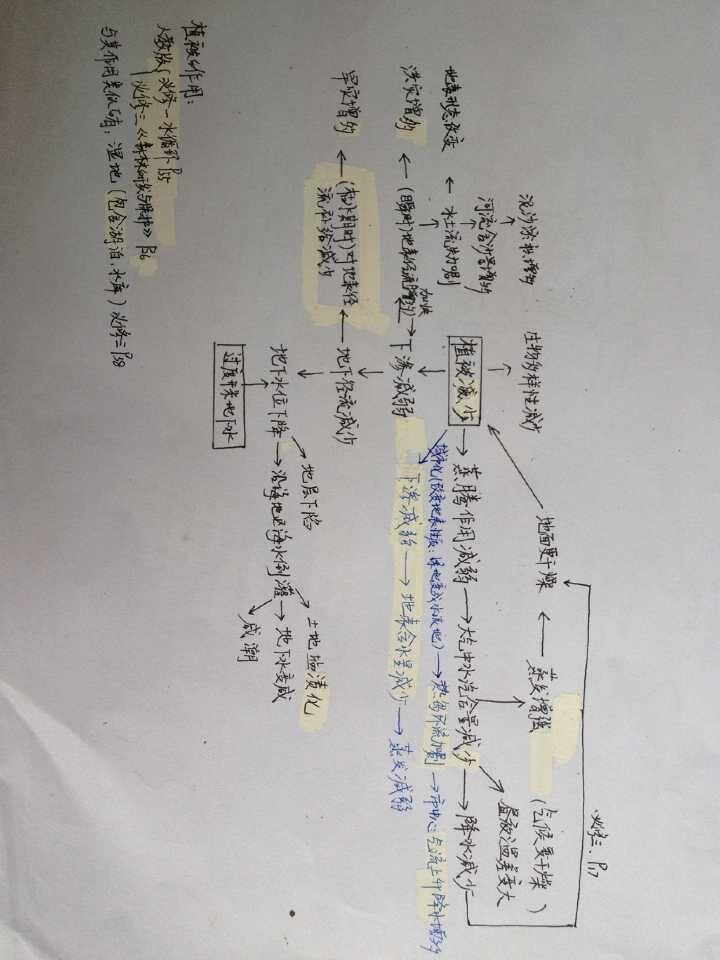 植被作用：
人教版 必修一水循环 P57
必修三《森林开发与保护》P26
与其作用类似的有：湿地（包含湖泊、水库）必修三P28
泥沙淤积增多
河流含沙量增多
地表形态改变 ← 水土流失加剧
加快
洪灾增多 ← (瞬时)地表径流增多
旱灾增多 ← (枯水期时)对地表径流补给减少
生物多样性减少
植被减少
下渗减弱
地下径流减少
地下水位下降
过度开采地下水
地层下陷
沿海地区海水倒灌 → 地下水变咸
土地盐渍化
咸潮
蒸腾作用减弱 → 大气中水汽含量减少 → 降水减少
昼夜温差变大
蒸发增强
(气候变干燥)
地面变干燥
必修三、P17
城市化(改变地表性质：绿地变成水泥地) → 热岛环流加剧 → 市中心与流上升降水增多
下渗减弱 → 地表含水量减少 → 蒸发减弱